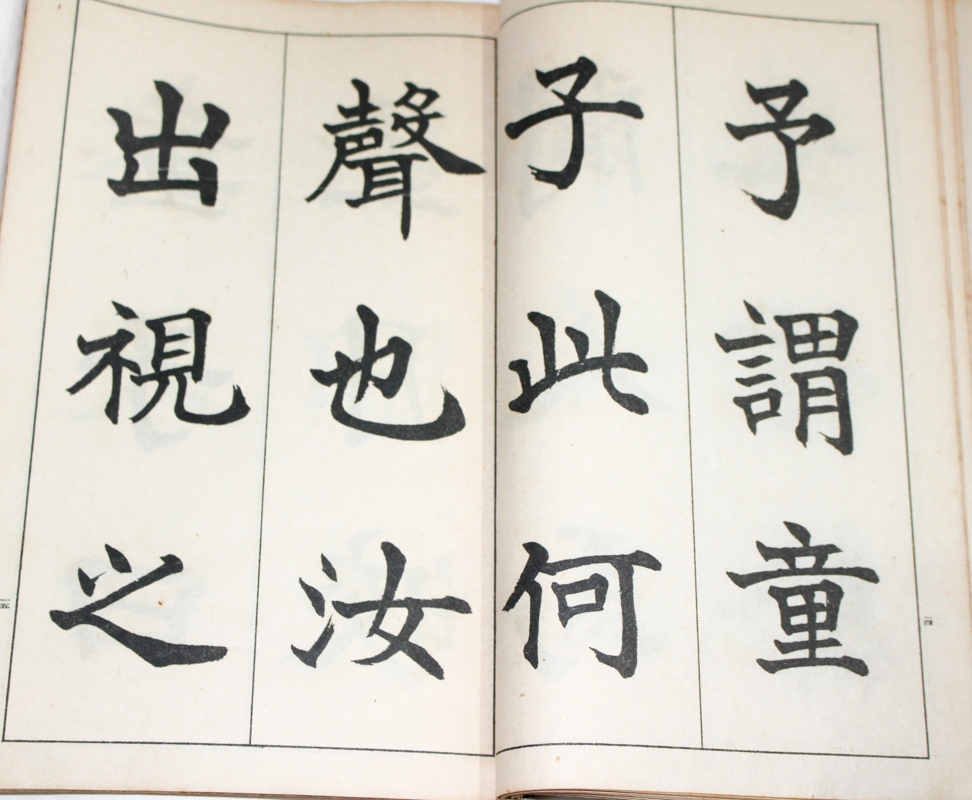 予謂童
子此何
聲也汝
出視之